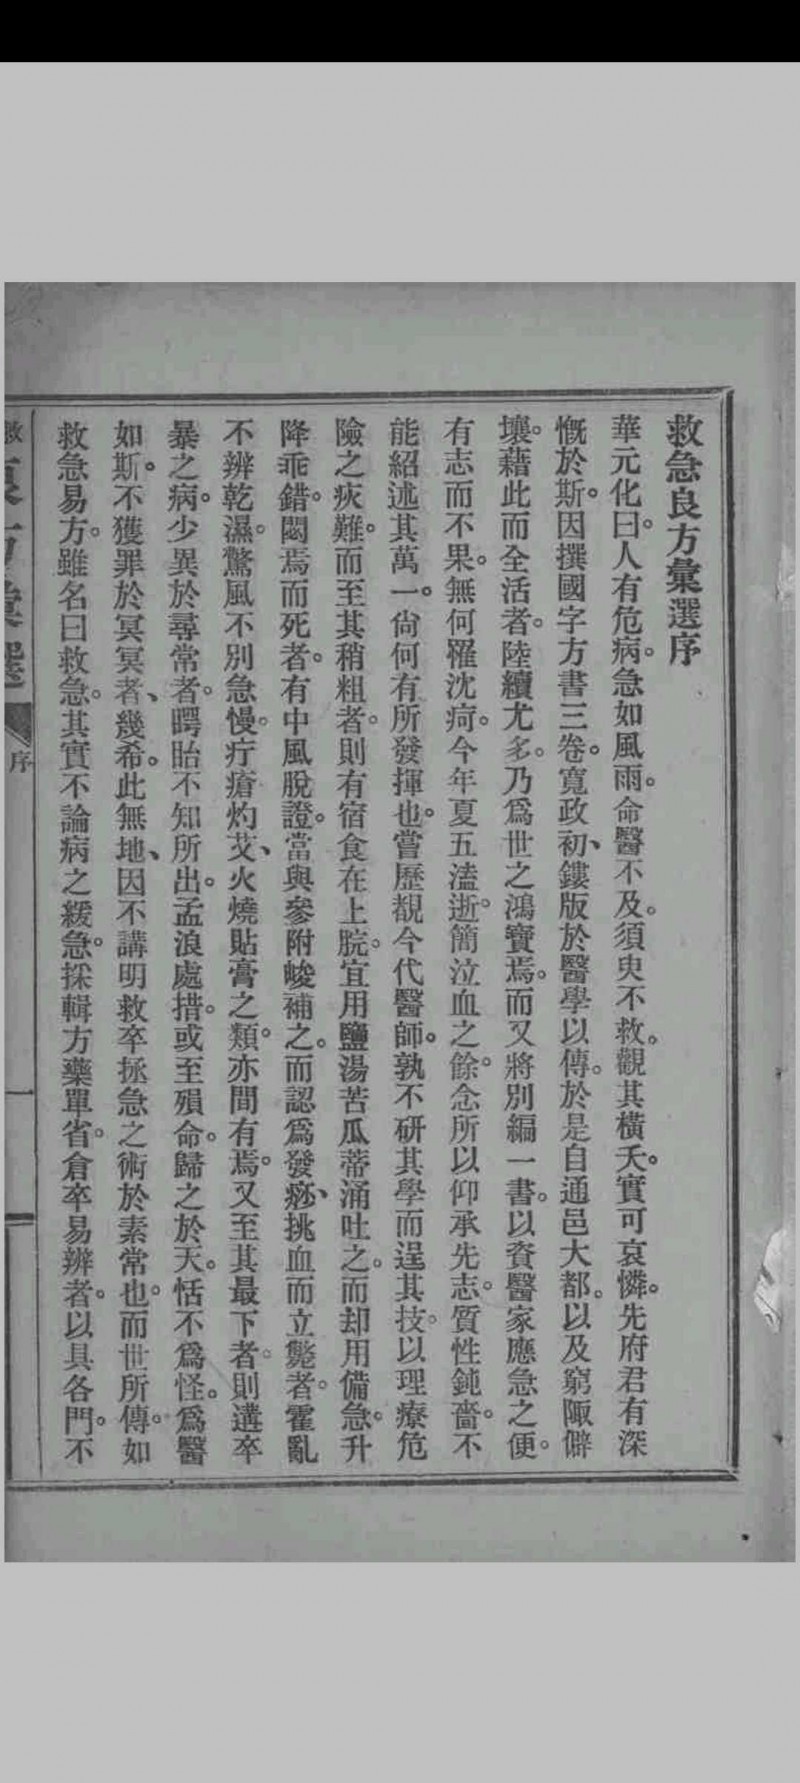 救急良方彙選序
華元化曰。人有危病。急如風雨。命醫不及。須臾不救。觀其橫夭。實可哀憐。先府君有深
慨於斯。因撰國字方書三卷。寬政初、鏤版於醫學以傳。於是自通邑大都。以及窮陬僻
壤。藉此而全活者。陸續尤多。乃爲世之鴻寶焉。而又將別編一書。以資醫家應急之便。
有志而不果。無何罹沈疴。今年夏五溘逝。簡泣血之餘。念所以仰承先志。質性鈍嗇。不
能紹述其萬一。尙何有所發揮也。嘗歷覩今代醫師。孰不研其學而逞其技。以理療危
險之疢難。而至其稍粗者。則有宿食在上脘。宜用鹽湯苦瓜蒂涌吐之。而却用備急。升
降乖錯。閟焉而死者。有中風脫證。當與參附峻補之。而認爲發痧、挑血而立斃者。霍亂
不辨乾濕。驚風不別急慢。疔瘡灼艾、火燒貼膏之類。亦間有焉。又至其最下者。則遘卒
暴之病。少異於尋常者。瞪眙不知所出。孟浪處措。或至殞命。歸之於天。恬不爲怪。爲醫
如斯。不獲罪於冥冥者、幾希。此無地、因不講明救卒拯急之術於素常也。而世所傳。如
救急易方。雖名曰救急。其實不論病之緩急。採輯方藥單省。倉卒易辨者。以具各門。不
良方彙選
序
一